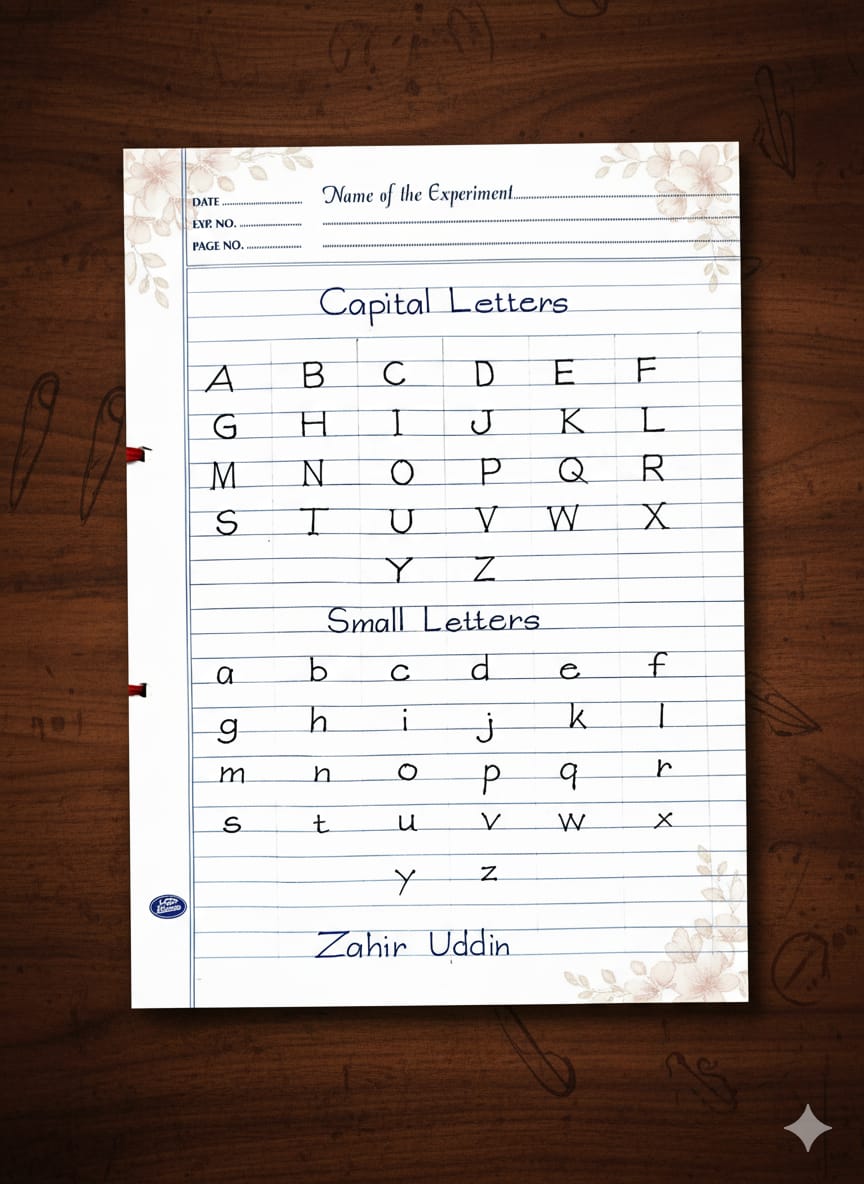 DATE
Name of the Experiment
EXP. NO.
PAGE NO.
Capital Letters
A B C D E F
G H I J K L
M N O P Q R
S T U V W X
Y Z
Small Letters
a b c d e f
g h i j k l
m n o p q r
s t u v w x
y z
Zahir Uddin